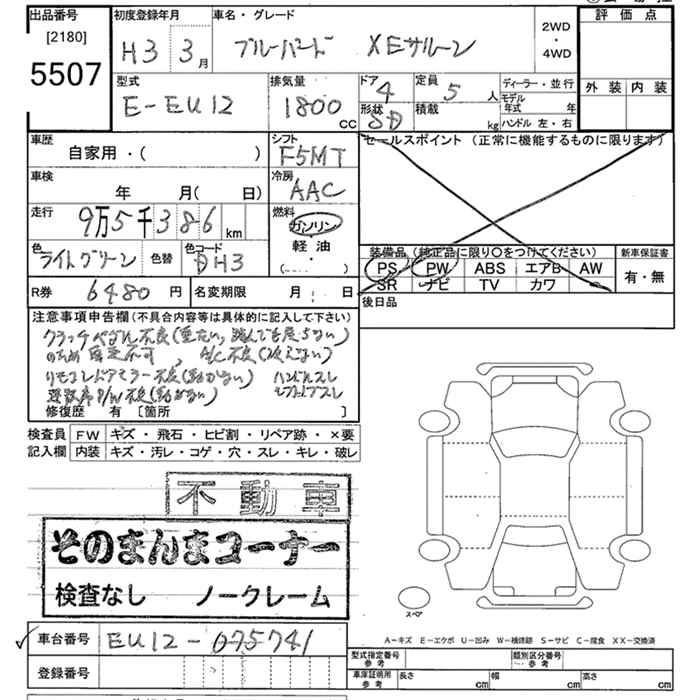 出品番号
[2180]
5507
初度登録年月
H3 3月
車名・グレード
ブルーバード XEサルーン
2WD
・
4WD
評価点
外装 内装
型式
E-EU12
排気量
1800
cc
ドア
4
形状
SD
定員
5 人
積載
kg
ディーラー・並行
モデル
年式 年
ハンドル 左・右
車歴
自家用・( )
シフト
F5MT
セールスポイント (正常に機能するものに限ります)
車検
年 月( 日)
冷房
AAC
走行
9万5千386 km
燃料
ガソリン
軽油
( )
色
ライトグリーン
色替
色コード
DH3
装備品 (純正品に限り○をつけてください)
PS PW ABS エアB AW
SR ナビ TV カワ
新車保証書
有・無
R券
6480 円
名変期限 月 日
後日品
注意事項申告欄(不具合内容等は具体的に記入して下さい)
クラッチペダル不良(重たい,踏んでも戻らない)
のため自走不可, A/C不良(冷えない)
リモコンドアミラー不良(動かない) ハンドルスレ
運転席P/W不良(動かない)
修復歴 有 [箇所 ]
検査員
記入欄
FW キズ・飛石・ヒビ割・リペア跡・×要
内装 キズ・汚レ・コゲ・穴・スレ・キレ・破レ
不動車
そのまんまコーナー
検査なし ノークレーム
スペア
A-キズ E-エクボ U-凹み W-補修跡 S-サビ C-腐食 XX-交換済
車台番号
EU12-075741
登録番号
型式指定番号
参考
類別区分番号
参考
車庫証明用
参考
長さ cm
幅 cm
高さ cm